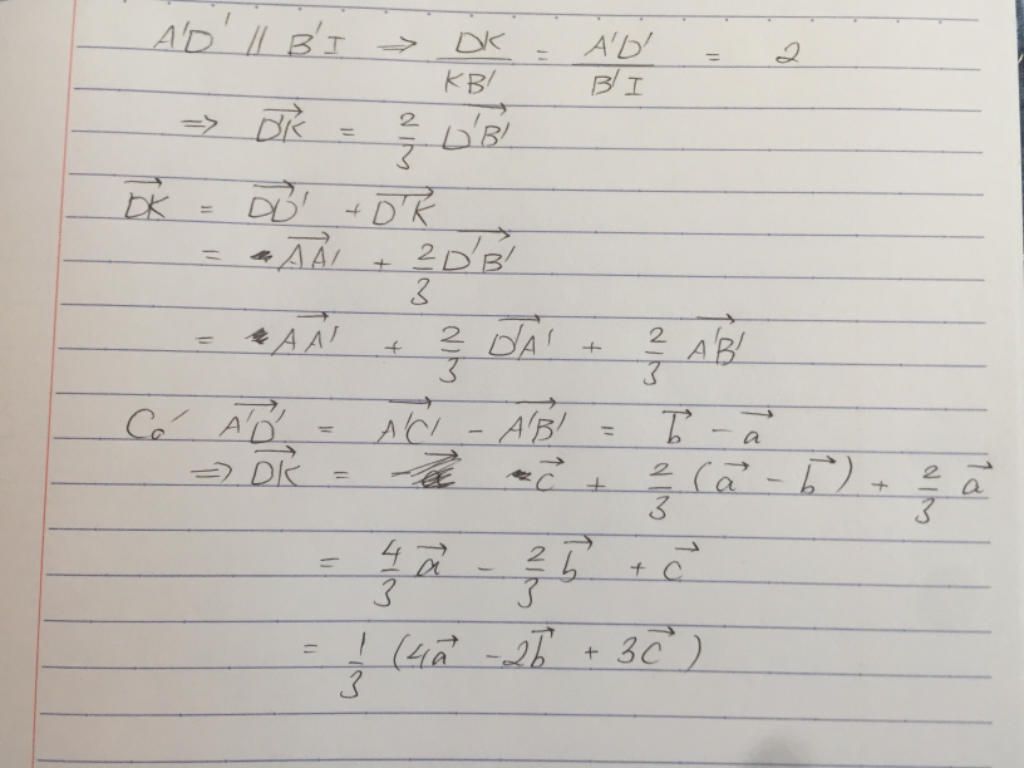 A'D' // B'I ⇒ DK/KB' = A'D'/B'I = 2
⇒ \overrightarrow{D'K} = 2/3 \overrightarrow{D'B'}
\overrightarrow{DK} = \overrightarrow{DD'} + \overrightarrow{D'K}
= \overrightarrow{AA'} + 2/3 \overrightarrow{D'B'}
= \overrightarrow{AA'} + 2/3 \overrightarrow{D'A'} + 2/3 \overrightarrow{A'B'}
Có \overrightarrow{A'D'} = \overrightarrow{A'C'} - \overrightarrow{A'B'} = \overrightarrow{b} - \overrightarrow{a}
⇒ \overrightarrow{DK} = \overrightarrow{c} + 2/3 (\overrightarrow{a} - \overrightarrow{b}) + 2/3 \overrightarrow{a}
= 4/3 \overrightarrow{a} - 2/3 \overrightarrow{b} + \overrightarrow{c}
= 1/3 (4\overrightarrow{a} - 2\overrightarrow{b} + 3\overrightarrow{c})